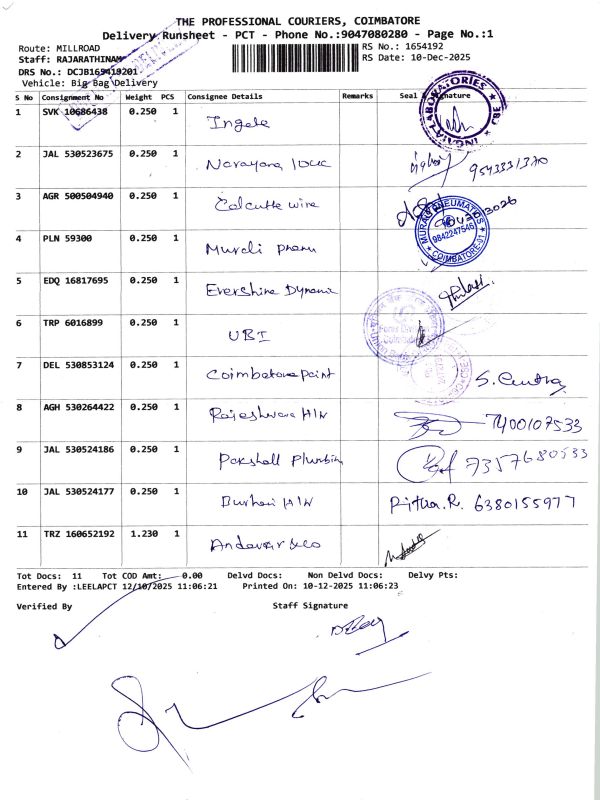 THE PROFESSIONAL COURIERS, COIMBATORE
Delivery Runsheet - PCT - Phone No.:9047080280 - Page No.:1
Route: MILLROAD
RS No.: 1654192
Staff: RAJARATHINAM
RS Date: 10-Dec-2025
DRS No.: DCJB165419201
Vehicle: Big Bag Delivery
S No Consignment No Weight PCS Consignee Details Remarks Seal Signature
1 SVK 10686438 0.250 1 Ingala
INGALA LABORATORIES CBE
2 JAL 530523675 0.250 1 Narayana 9543331370
3 AGR 500504940 0.250 1 Calcutta wire
4 PLN 59300 0.250 1 Murali pneu
MURALI PNEUMATICS 9842247546 COIMBATORE
5 EDQ 16817695 0.250 1 Evershine Dynamic
6 TRP 6016899 0.250 1 UBI
7 DEL 530853124 0.250 1 Coimbatore paint
8 AGH 530264422 0.250 1 Rajeshwara H/W 7400107533
9 JAL 530524186 0.250 1 Plumbing 7357680533
10 JAL 530524177 0.250 1 Burhani H/W Pitha.R. 6380155977
11 TRZ 160652192 1.230 1 Andavar &co
Tot Docs: 11 Tot COD Amt: 0.00 Delvd Docs: Non Delvd Docs: Delvy Pts:
Entered By :LEELAPCT 12/10/2025 11:06:21 Printed On: 10-12-2025 11:06:23
Verified By Staff Signature